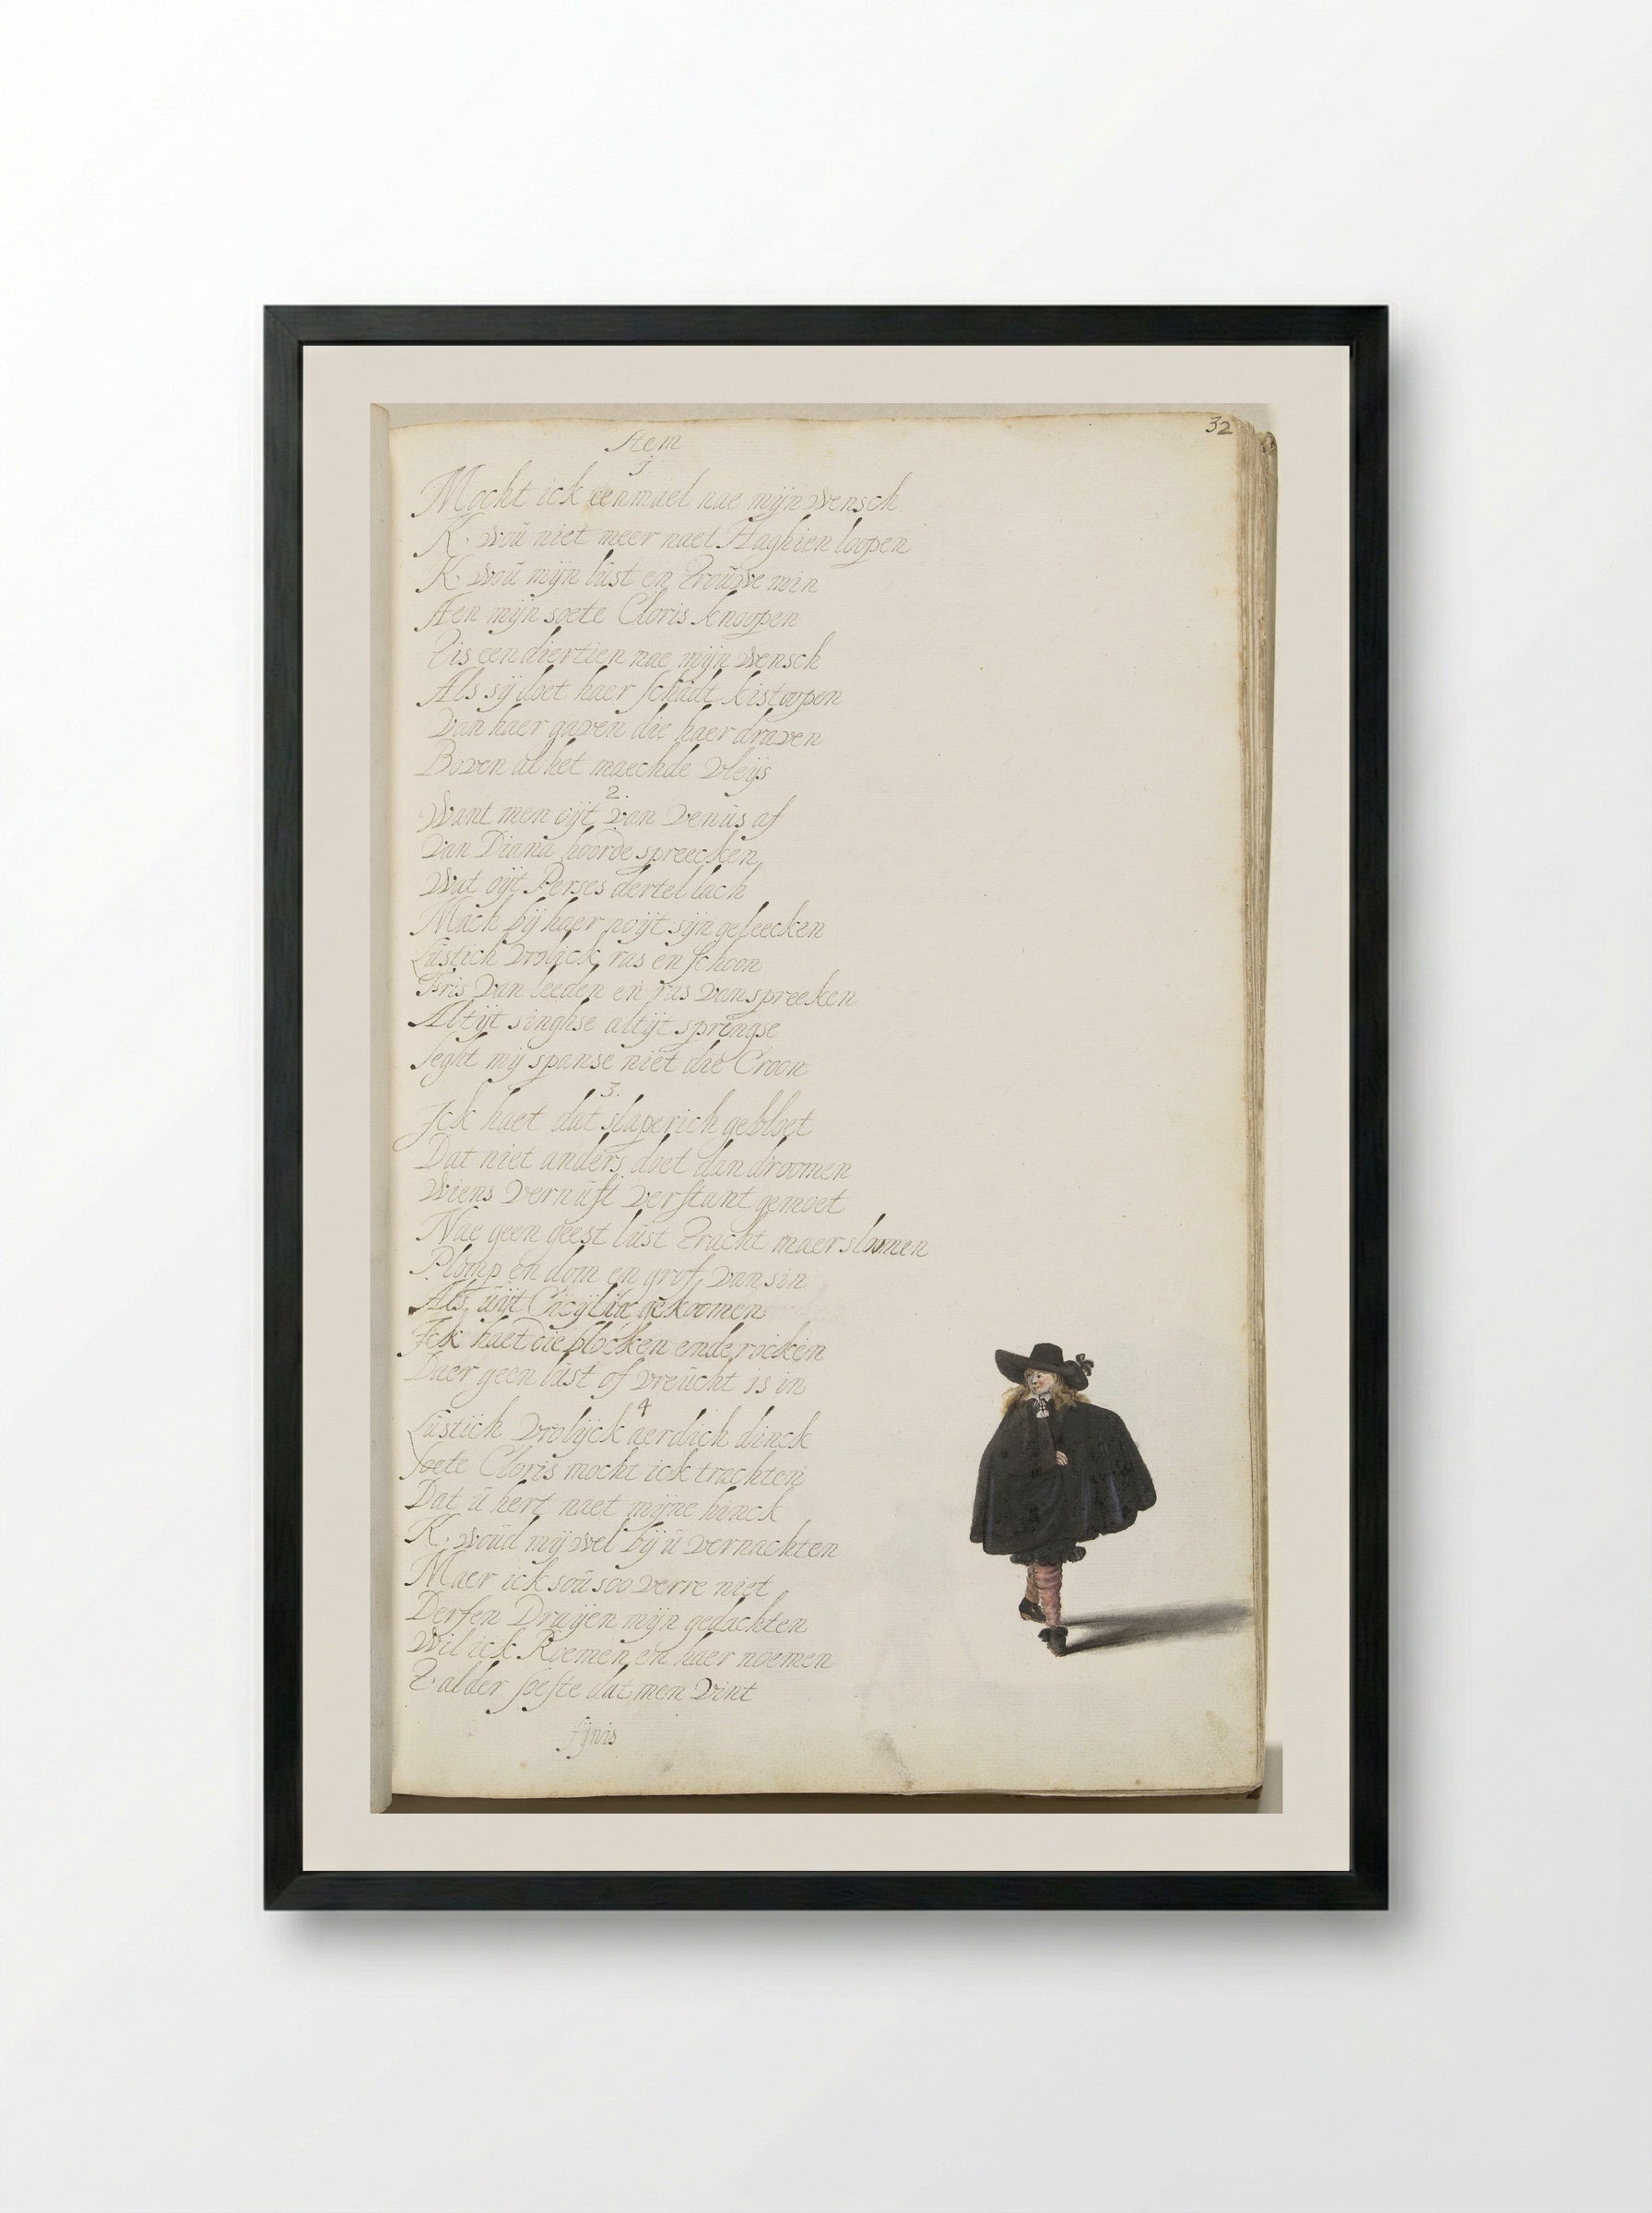 32
Stem
j
Mocht ick eenmael nae mijn wensch
K. woú niet meer naet Haghien loopen
K. woú mijn lúst en troúwe min
Aen mijn soete Cloris knoopen
Tis een diertien nae mijn wensch
Als sij doet haer schadt kist oopen
Van haer gaven die haer draven
Boven al het maechde vleijs
2.
Want men oijt van Venús af
Van Diana hoorde spreecken
Wat oijt Perses dertel lach
Mach bij haer noijt sijn geleecken
Lústich vrolick, ras en schoon
Fris van leeden en ras van spreeken
Altijt singhse altijt springse
Seght mij spanse niet die Croon
3.
Jck haet dat slaperich gebloet
Dat niet anders doet dan droomen
Wiens vernúft verstant gemoet
Nae geen geest lúst tracht maer sloomen
Plomp en dom en grof van sin
Als úijt gekoomen
Jck haet die blocken ende rocken
Daer geen lúst of vreúcht is in
4
Lústich vrolijck aerdich dinck
Soete Cloris mocht ick trachten
Dat ú hert naet mijne hinck
K. woúd mij wel bij ú vernachten
Maer ick soú soo verre niet
Derfen Draijen mijn gedachten
Wil ick Roemen en haer noemen
T. alder soeste dat men vint
fijnis